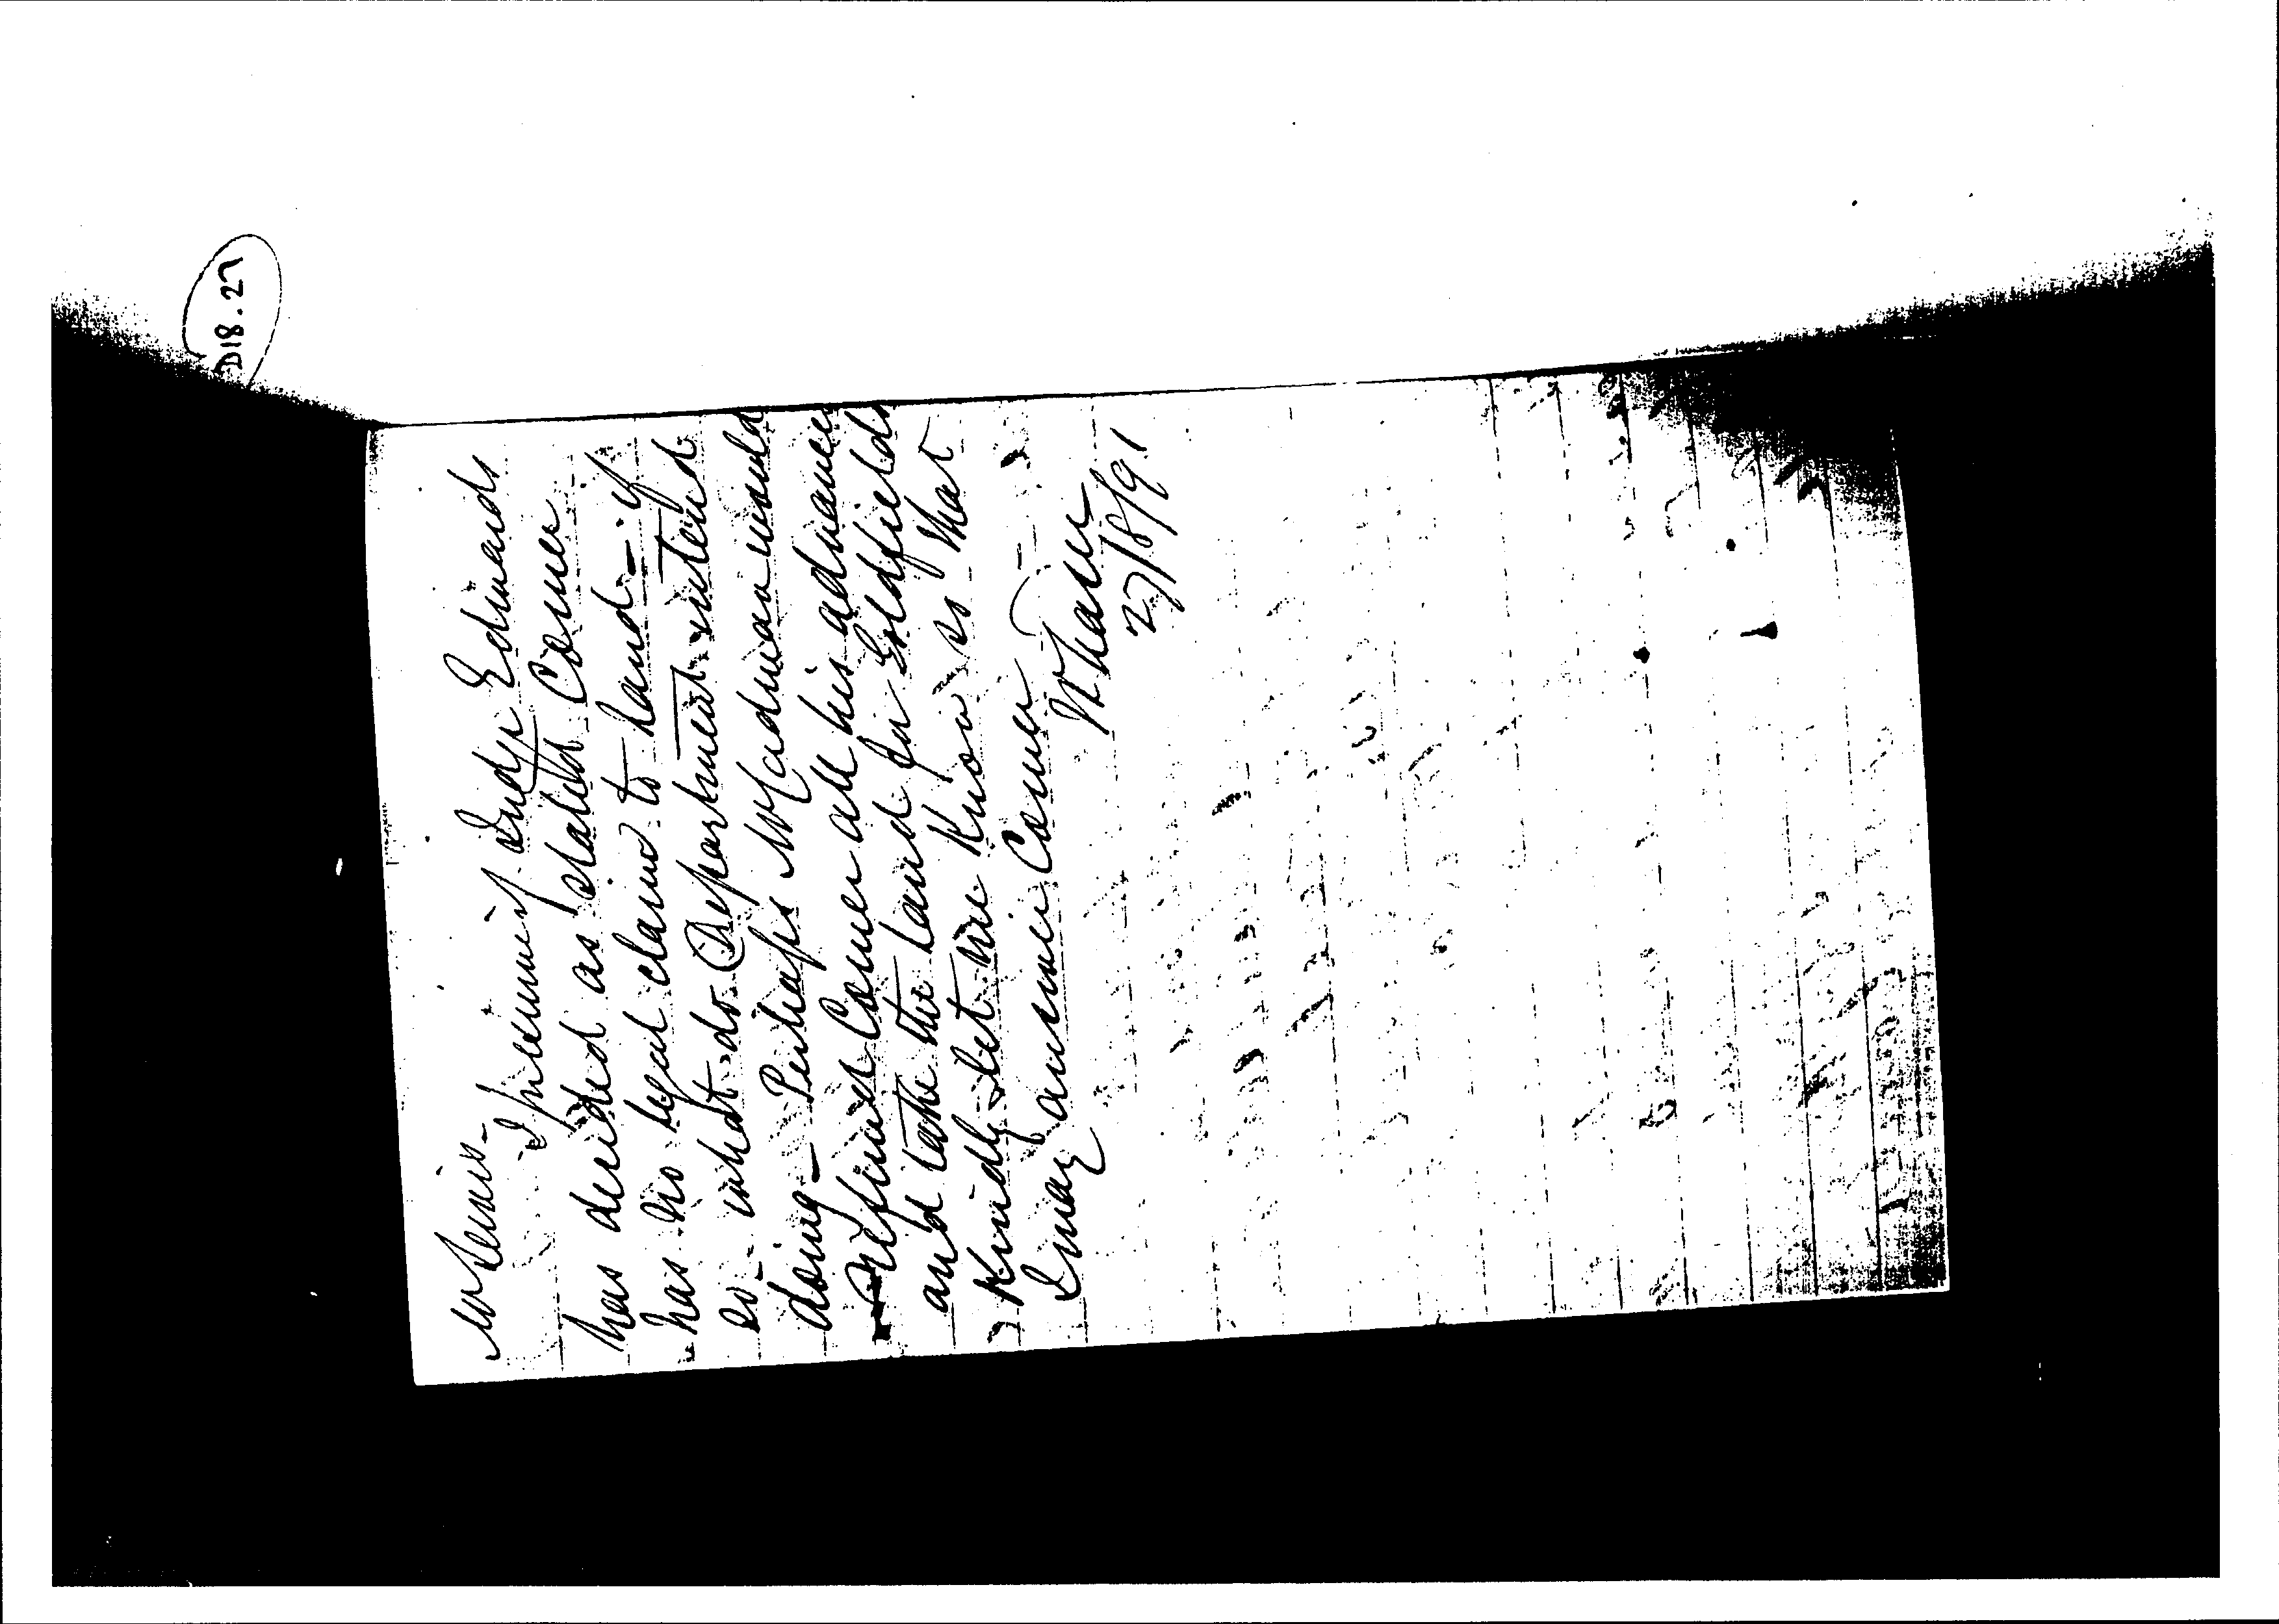 D18.27
Mr Lewis -
I presume if Judge Edwards
has decided as stated Comer
has no legal claim to land - if
so - what do Department intend
doing - Perhaps Mr Cadman would
refund Comer all his advances
and take the land for Goldfields
Kindly let me know so that
I may answer Comer
27/8/91